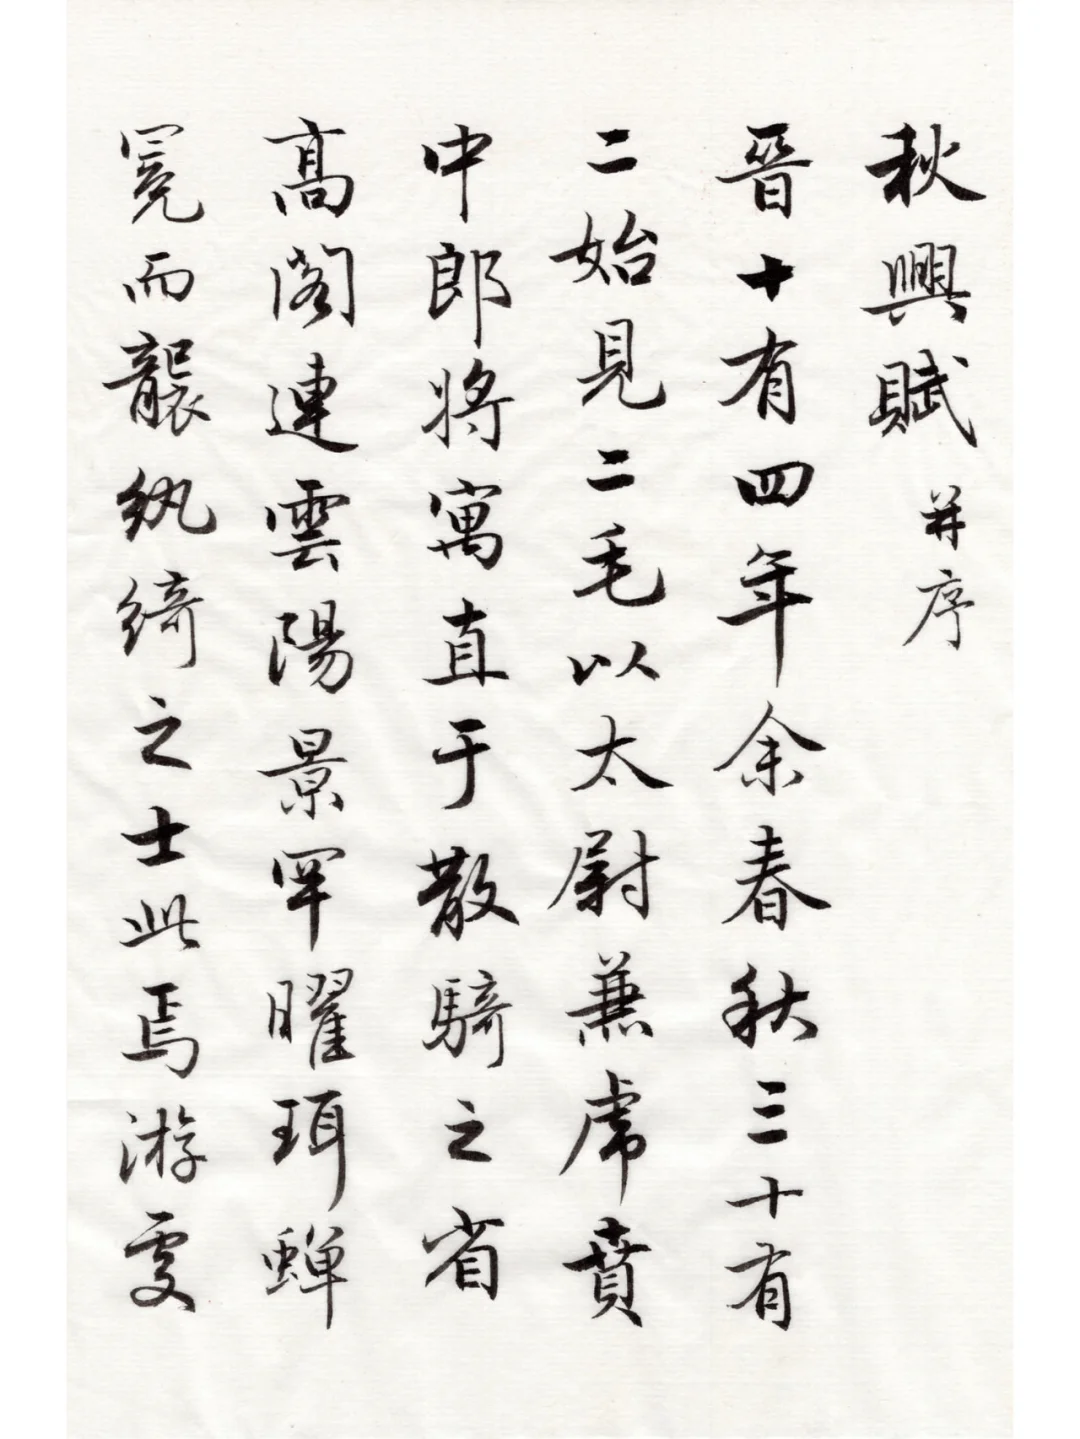 秋興賦并序
晉十有四年余春秋三十有
二始見二毛以太尉兼虎賁
中郎將寓直于散騎之省
高閣連雲陽景罕曜珥蟬
冕而襲紈綺之士此焉游處